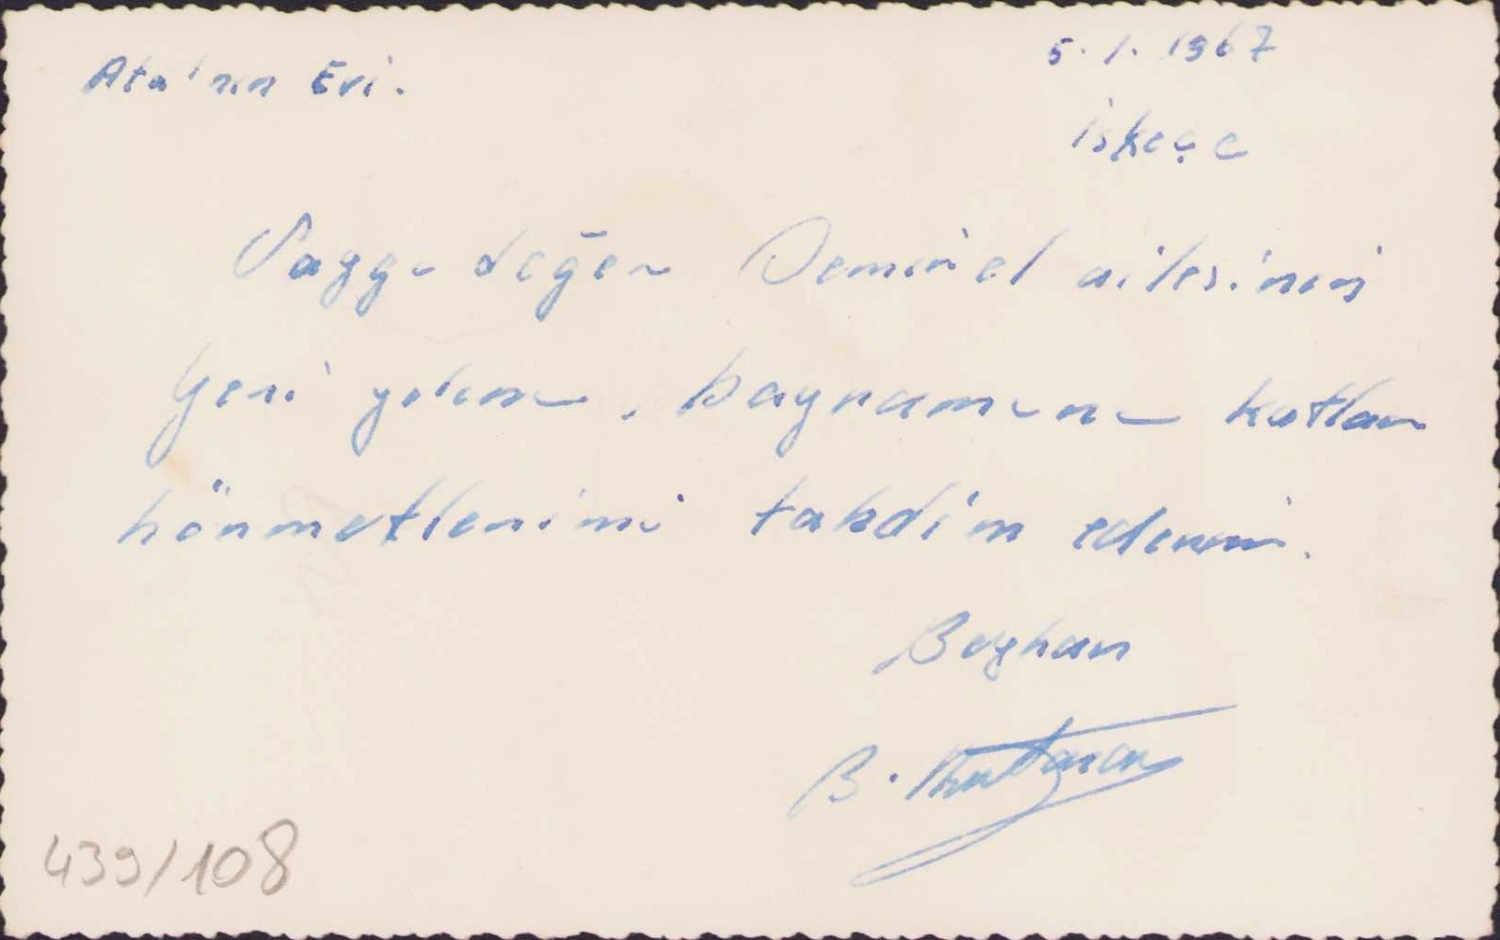 Ata'nın Evi.
5.1.1967
İskeçe
Saygı değer Demirel ailesinin
Yeni yılını, bayramını kutlar
hörmetlerimi takdim ederim.
Beyhan
B.
439/108